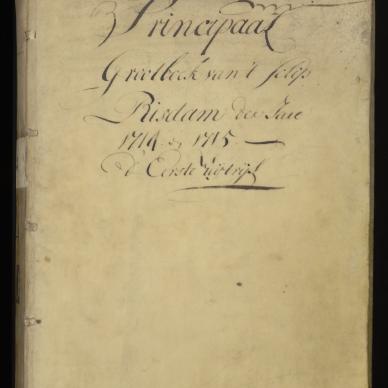 Principaal
Grootboek van 't schip
Risdam des Jare
1714 en 1715
d' Eerste uijtreijs